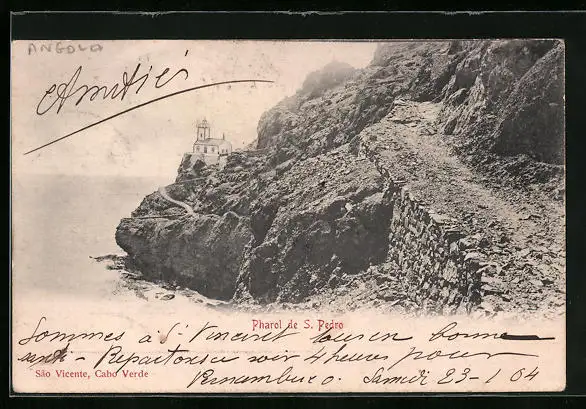 ANGOLA
Amitiés
Pharol de S. Pedro
Sommes à St Vincent tous en bonne
santé - Repartons ce soir 4 heures pour
São Vicente, Cabo Verde
Pernambuco. Samedi 23-1 04